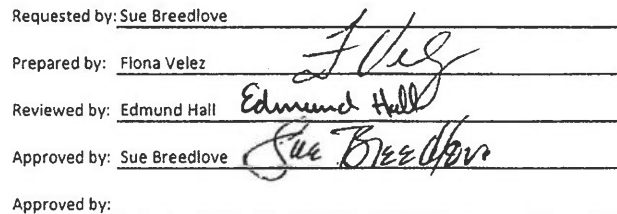 Requested by: Sue Breedlove
Prepared by: Fiona Velez F Velez
Reviewed by: Edmund Hall Edmund Hall
Approved by: Sue Breedlove Sue Breedlove
Approved by: